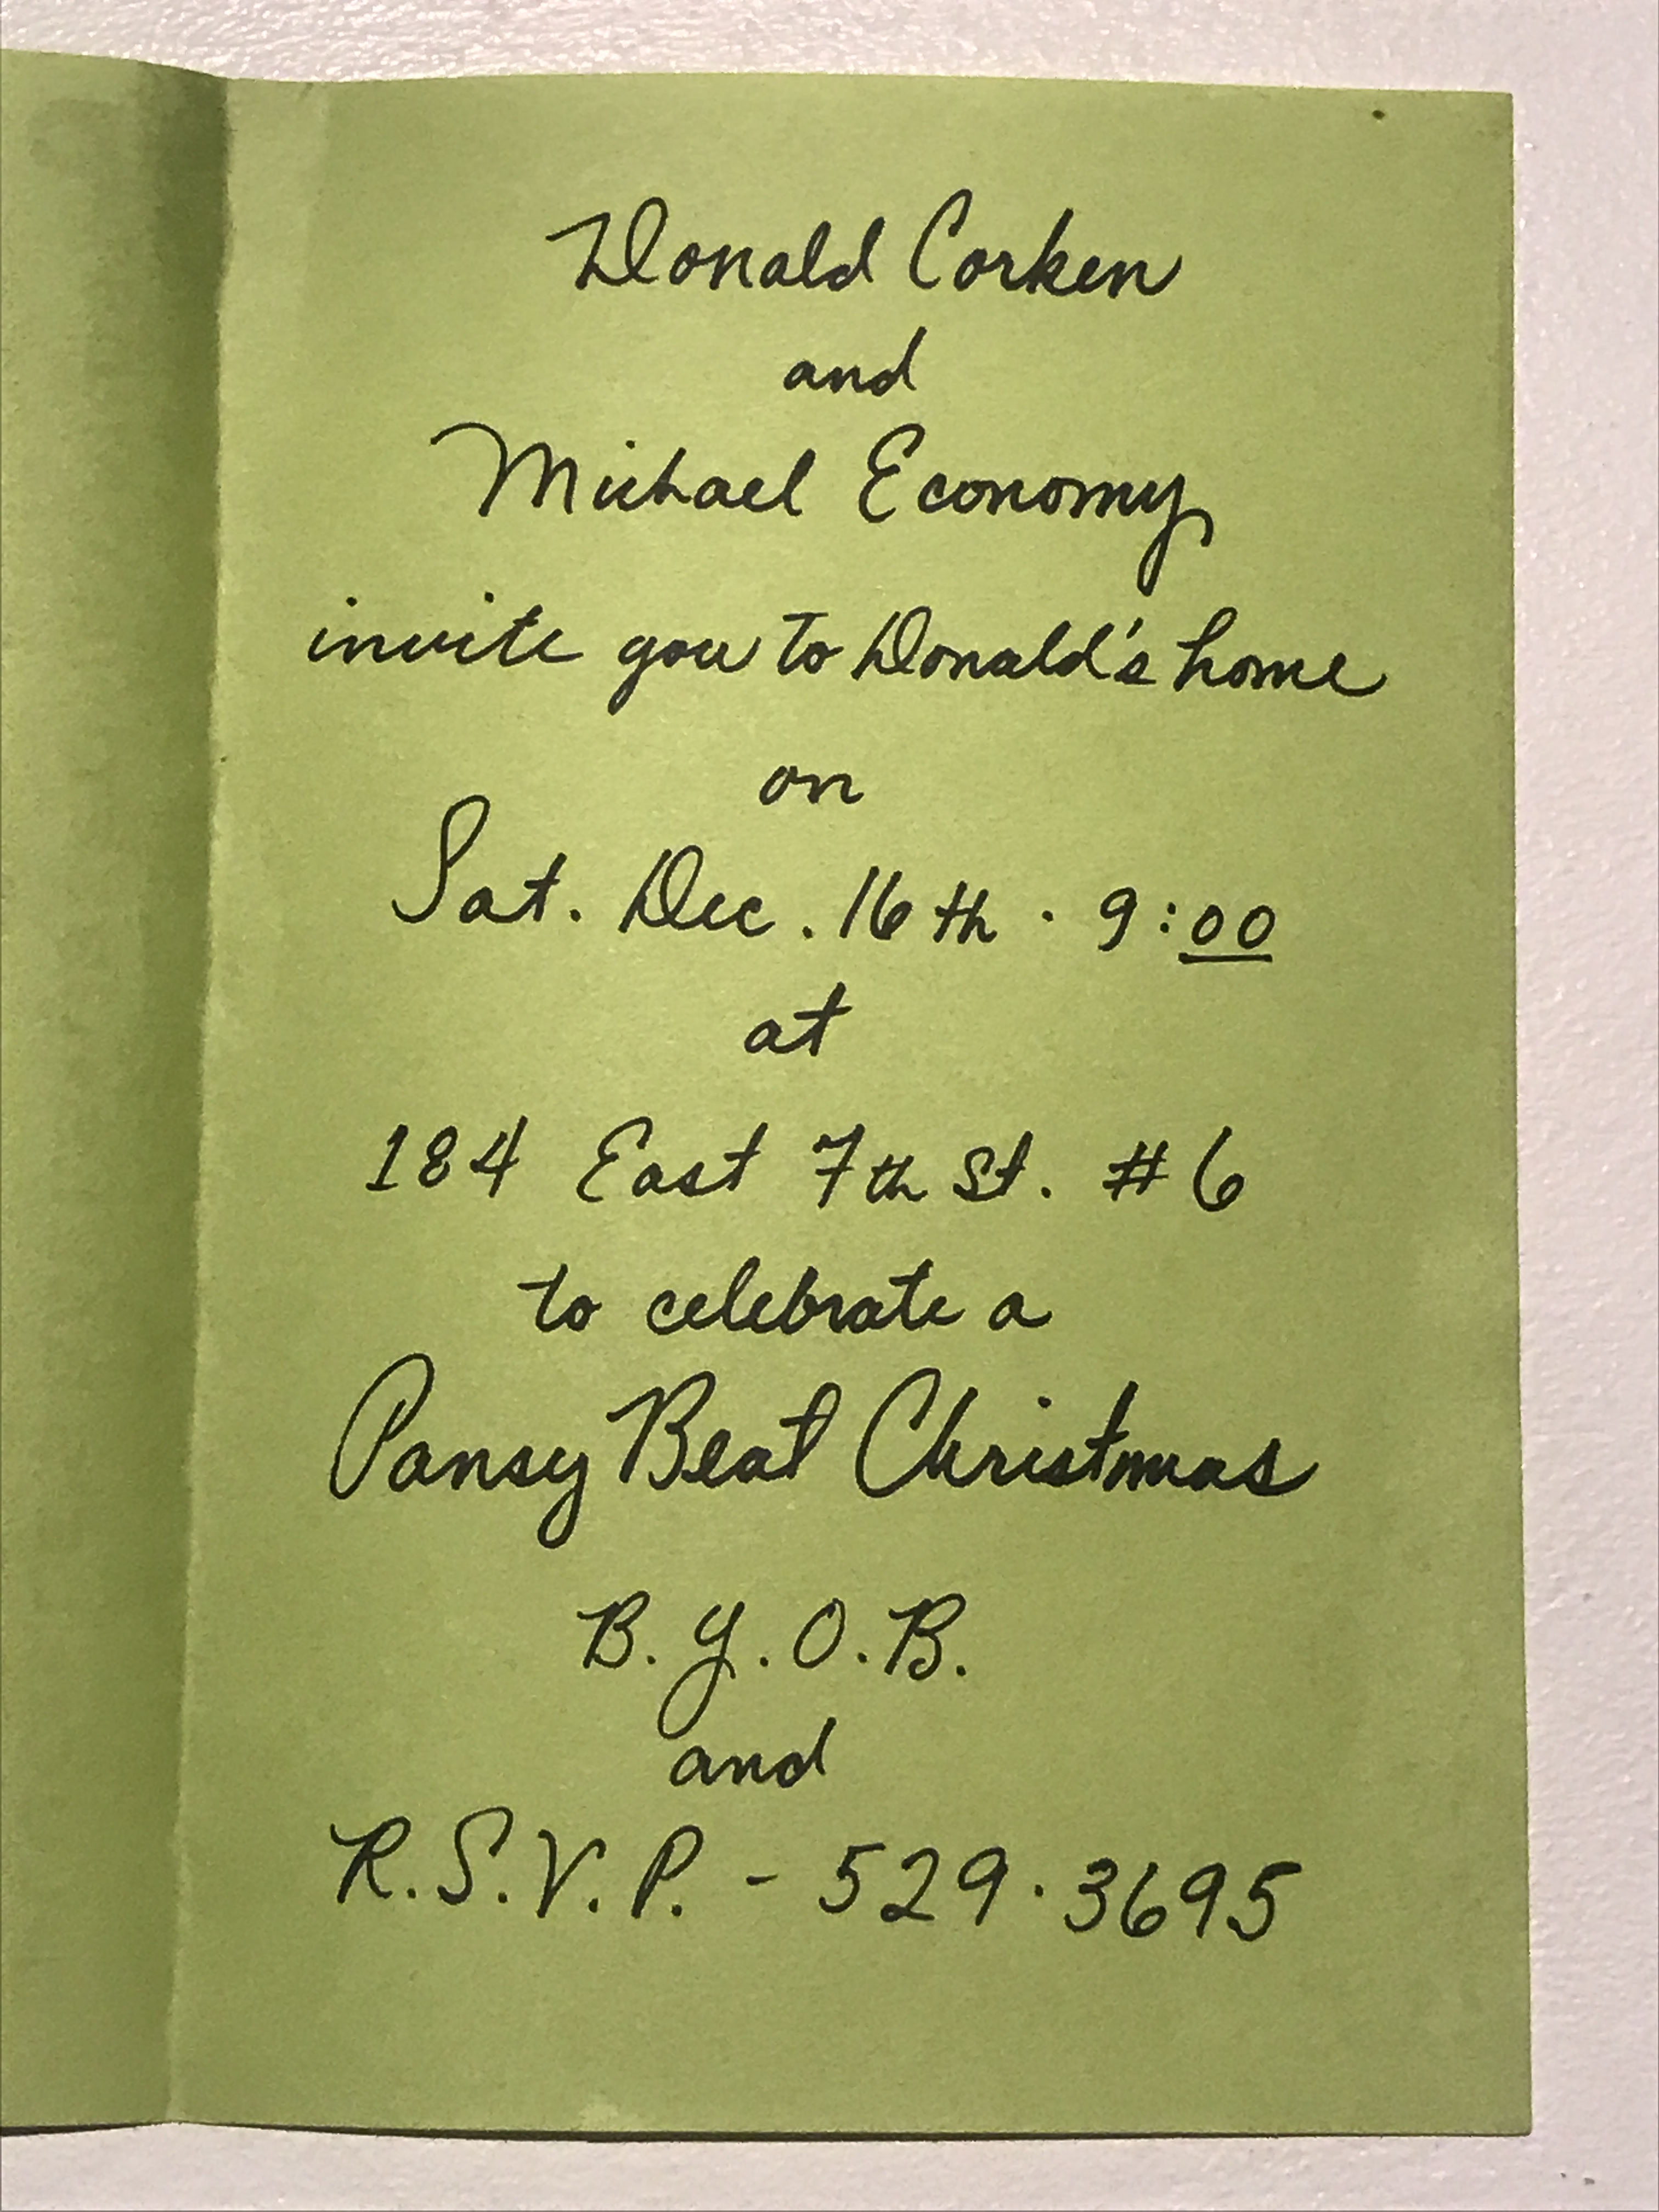 Donald Corken
and
Michael Economy
invite you to Donald's home
on
Sat. Dec. 16th · 9:00
at
184 East 7th St. #6
to celebrate a
Pansy Beat Christmas
B.Y.O.B.
and
R.S.V.P. - 529·3695